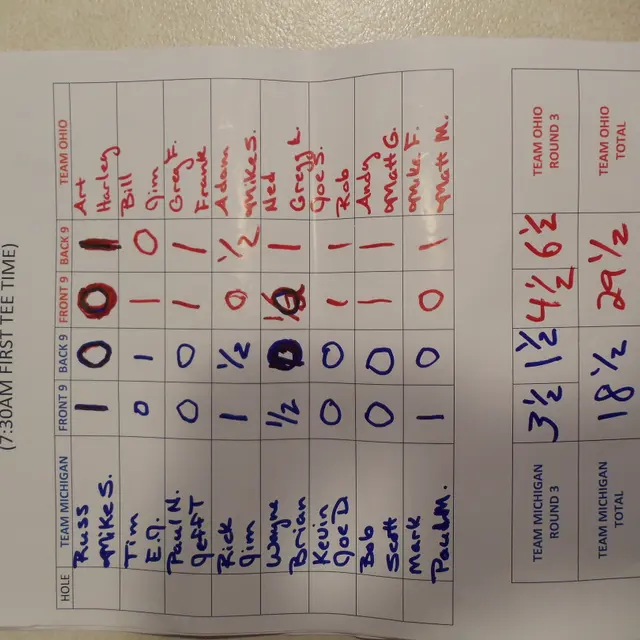 (7:30AM FIRST TEE TIME)
HOLE TEAM MICHIGAN FRONT 9 BACK 9 FRONT 9 BACK 9 TEAM OHIO
Russ 1 0 0 1 Art
Mike S. Harley
Tim 0 1 1 0 Bill
E.J. Jim
Paul N. 0 0 1 1 Greg F.
Jeff T Frank
Rick 1 1/2 0 1/2 Adam
Jim Mike S.
Wayne 1/2 0 1/2 1 Ned
Brian Gregg L.
Kevin 0 0 1 1 Joe S.
Joe D Rob
Bob 0 0 1 1 Andy
Scott Matt G.
Mark 1 0 0 1 Mike F.
Paul M. Matt M.
TEAM MICHIGAN 3 1/2 1 1/2 4 1/2 6 1/2 TEAM OHIO
ROUND 3 ROUND 3
TEAM MICHIGAN 18 1/2 29 1/2 TEAM OHIO
TOTAL TOTAL